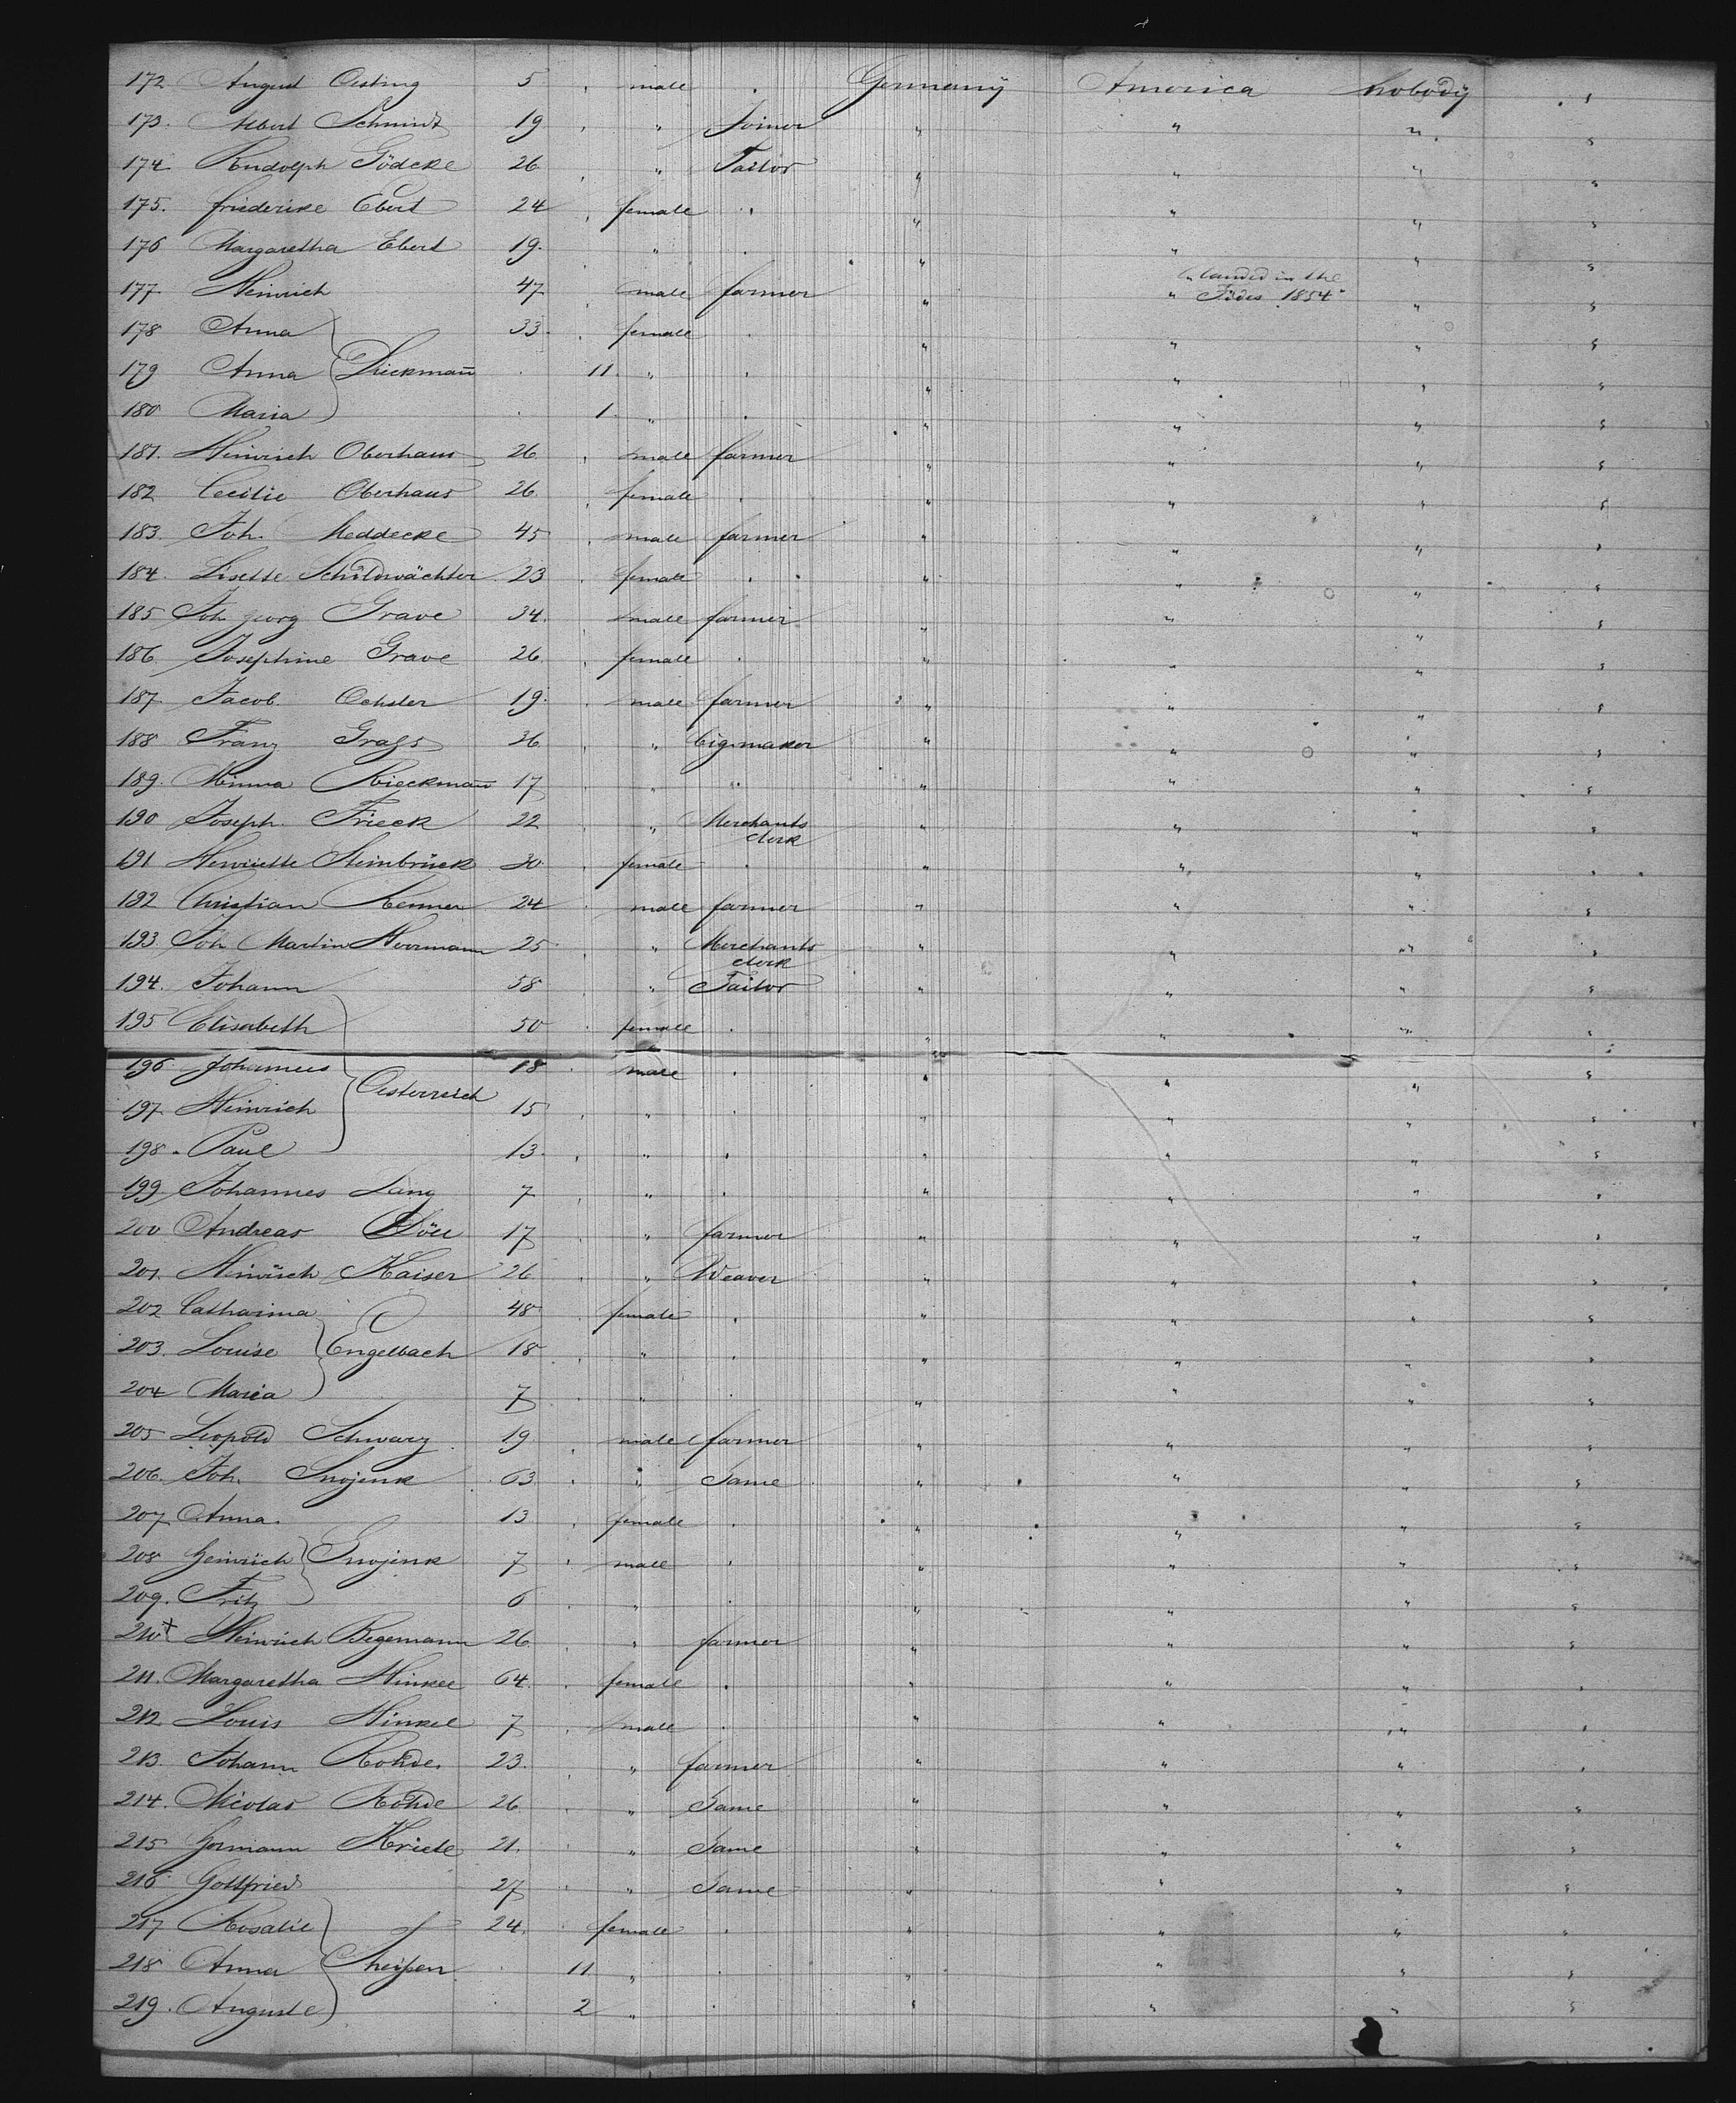 172 August Oesting 5 male Germany America nobody
173. Albert Schmidt 19 " Joiner " " "
174. Rudolph Gödeke 26 " Tailor " " "
175. Friederike Ebert 24 female " " "
176 Margaretha Ebert 19. " " " "
177. Heinrich 47 male farmer " " landed in the States 1854 "
178 Anna 33. female " " "
179 Anna Dieckmañ 11. " " " "
180 Maria 1. " " " "
181. Heinrich Oberhaus 26 male farmer " " "
182 Cecilie Oberhaus 26 female " " "
183. Joh. Meddecke 45 male farmer " " "
184. Lisette Schildwächter 23 female " " "
185 Joh georg Grave 34. male farmer " " "
186. Josephine Grave 26 female " " "
187 Jacob Ochsler 19. male farmer " " "
188 Franz 36 " Cigmaker " " "
189. Minna Rieckmañ 17 " " " "
190 Joseph Frieck 22 " Merchants clerk " " "
191 Henriette Steinbrück 30 female " " "
192 Christian Renner 24 male farmer " " "
193. Joh Martin Hoermann 25 " Merchants clerk " " "
194. Johann 58 " Tailor " " "
195 Elisabeth 50 female " " "
196 Johannes 18 male " " "
197. Heinrich Oesterreich 15 " " " "
198. Paul 13. " " " "
199 Johannes Lang 7 " " " "
200 Andreas Döll 17 " farmer " " "
201. Heinrich Kaiser 26 " Weaver " " "
202 Catharina 48 female " " "
203. Louise Engelbach 18 " " " "
204 Maria 7 " " " "
205 Leopold Schwarz 19 male farmer " " "
206. Joh. 63. " Same " " "
207 Anna. 13 female " " "
208 Heinrich 7 male " " "
209. Fritz 6 " " " "
210 + Heinrich Begemann 26 " farmer " " "
211. Margaretha Hinkel 64. female " " "
212 Louis Hinkel 7 male " " "
213. Johann Rohde. 23. " farmer " " "
214. Nicolas Rohde 26 " Same " " "
215 Hermann Kriete 21. " Same " " "
216 Gottfried 27 " Same " " "
217 Rosalie 24. female " " "
218 Anna Theißen 11. " " " "
219. Auguste 2 " " " "